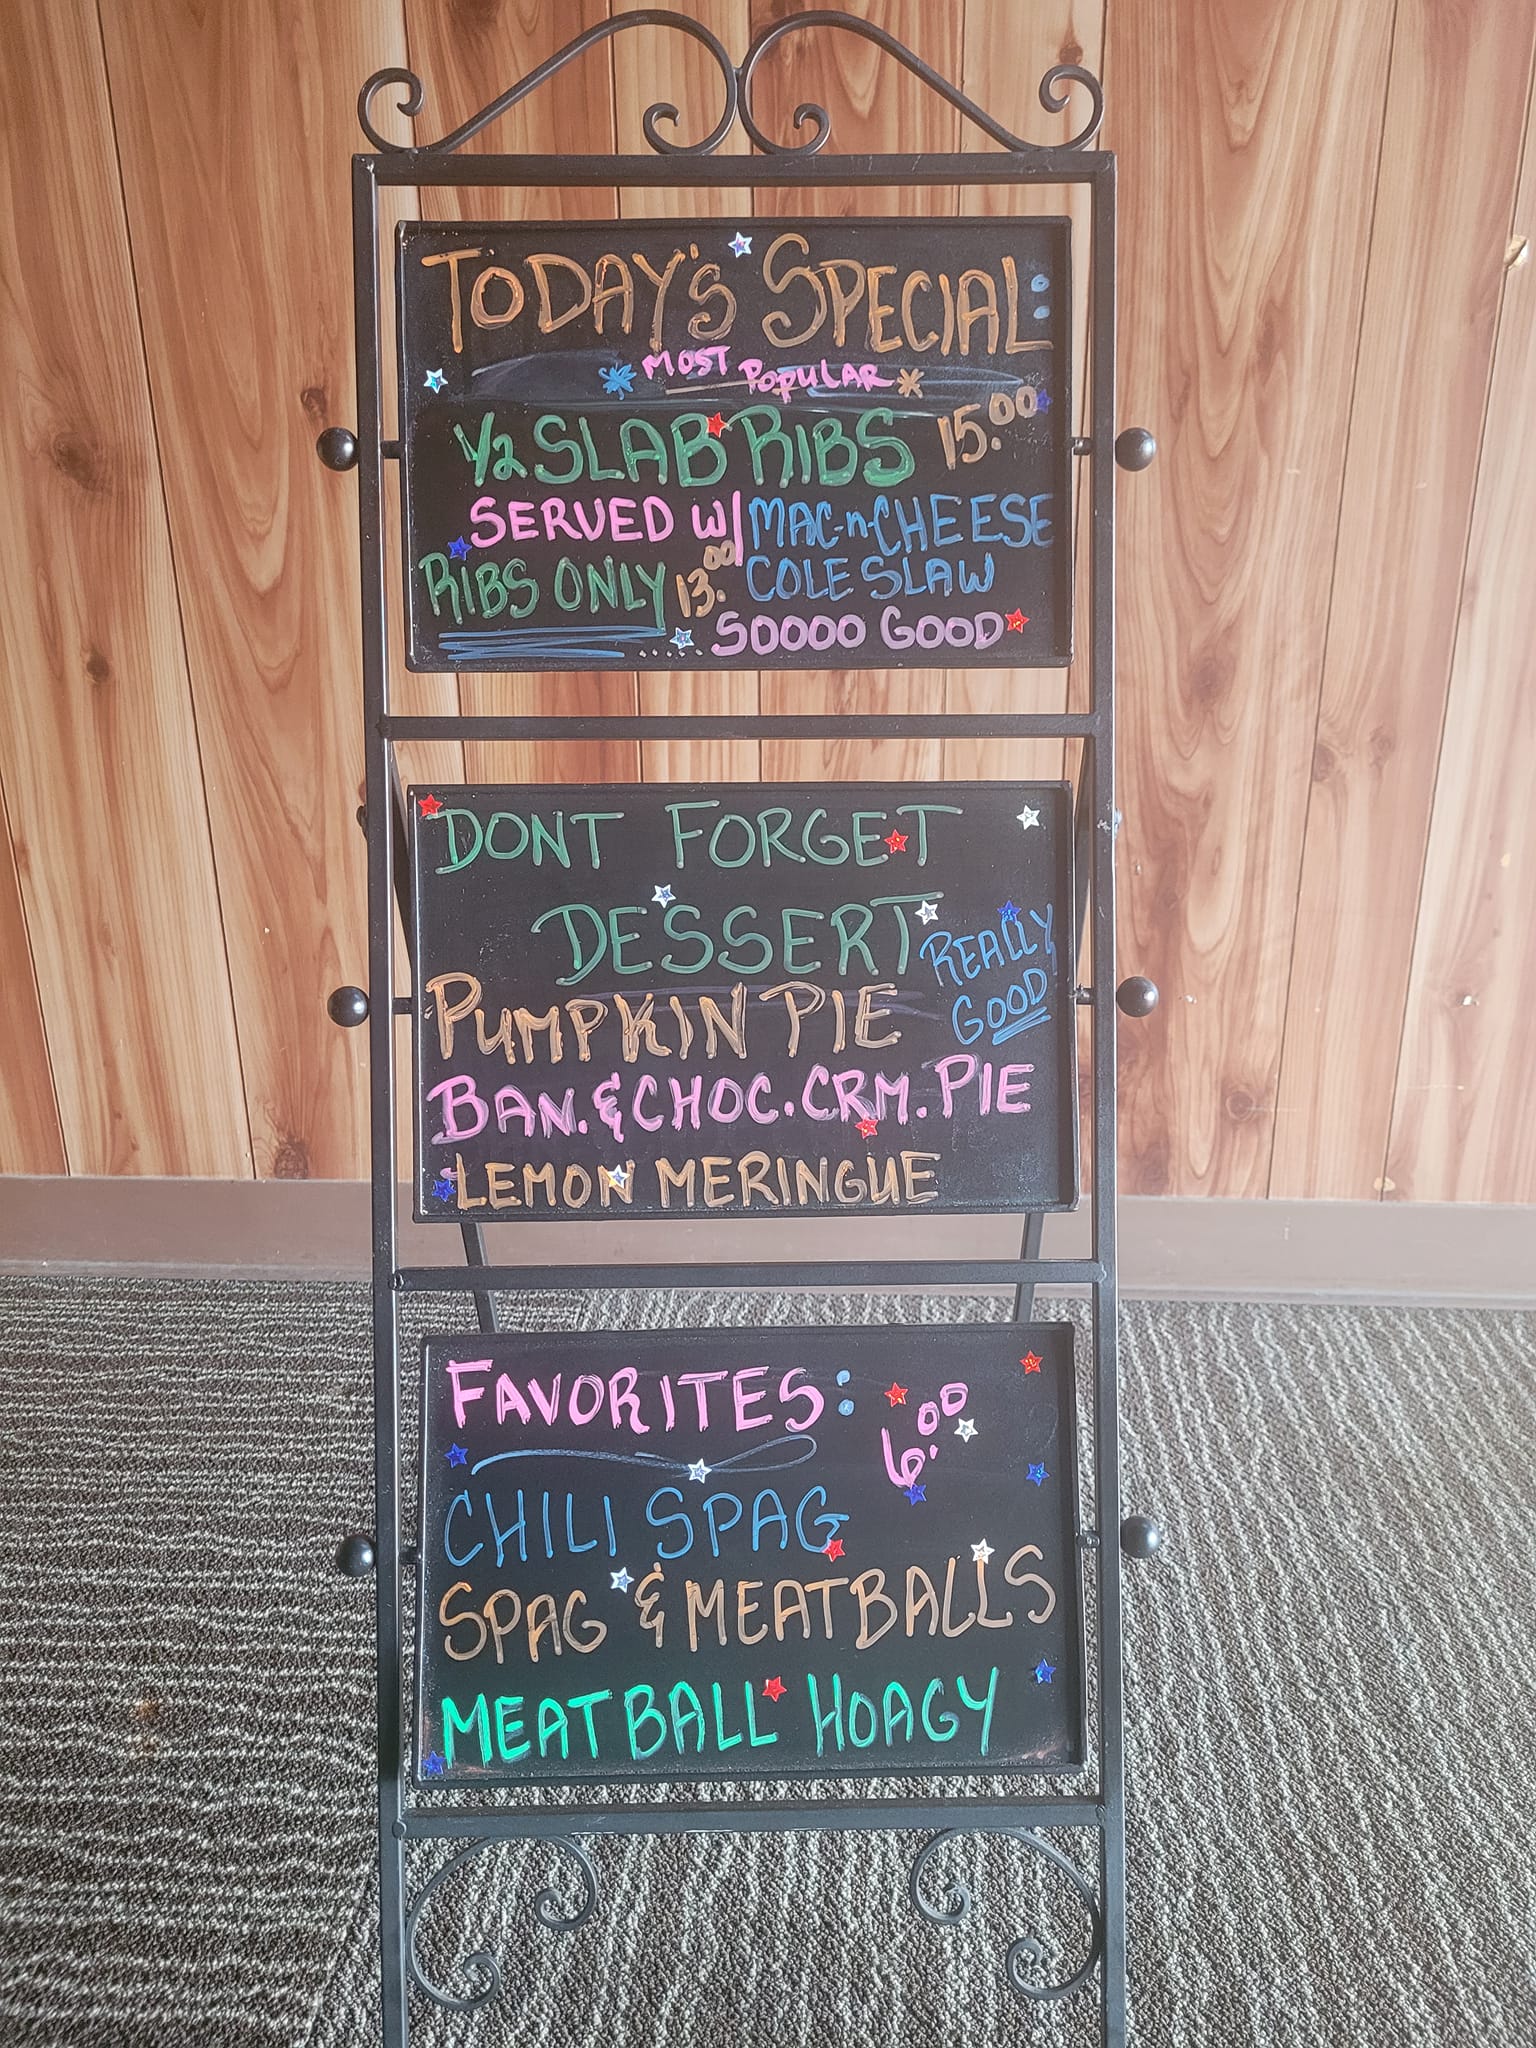 TODAY'S SPECIAL:
MOST POPULAR
1/2 SLAB RIBS 15.00
SERVED W/ MAC-n-CHEESE
RIBS ONLY 13.00 COLE SLAW
..... SOOOO GOOD
DONT FORGET
DESSERT
REALLY
GOOD
PUMPKIN PIE
BAN. & CHOC. CRM. PIE
LEMON MERINGUE
FAVORITES: 6.00
CHILI SPAG
SPAG & MEATBALLS
MEATBALL HOAGY